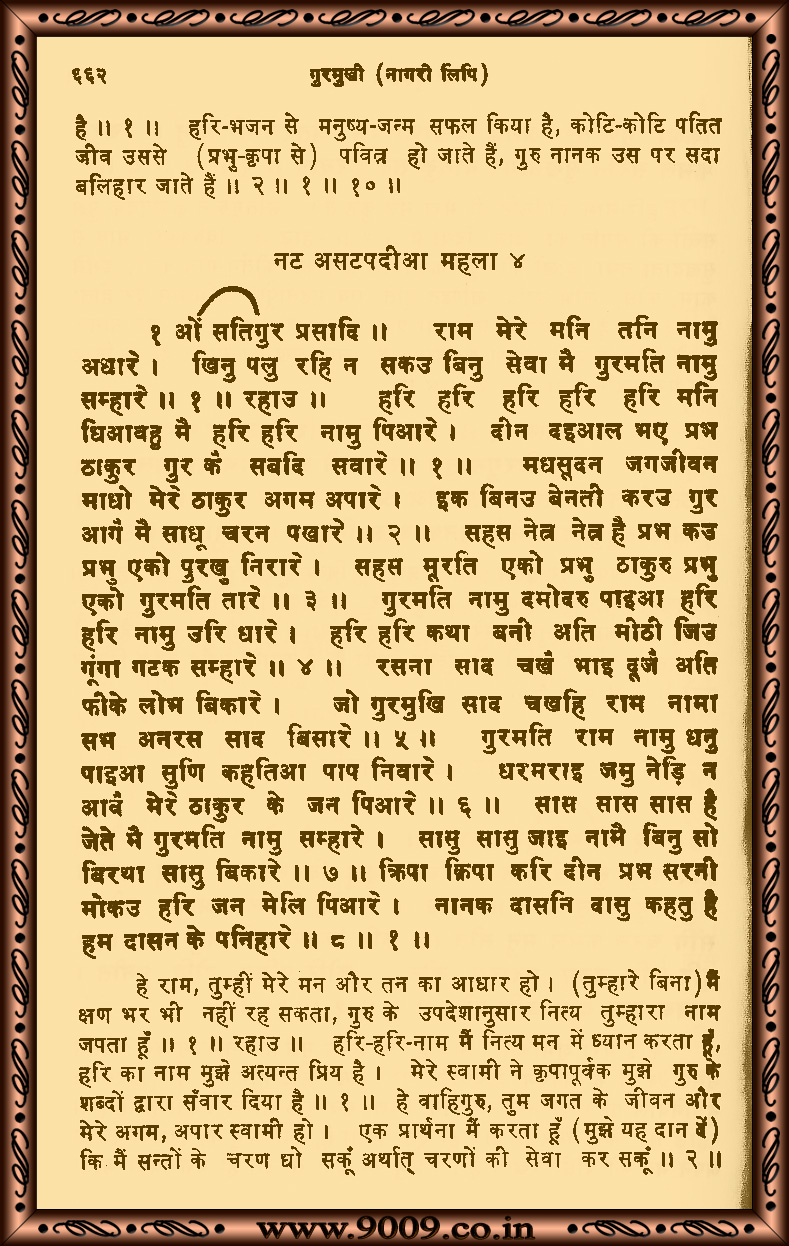 ६६२ गुरमुखी (नागरी लिपि)
है ॥ १ ॥ हरि-भजन से मनुष्य-जन्म सफल किया है, कोटि-कोटि पतित
जीव उससे (प्रभु-कृपा से) पवित्र हो जाते हैं, गुरु नानक उस पर सदा
बलिहार जाते हैं ॥ २ ॥ १ ॥ १० ॥
नट असटपदीआ महला ४
१ ओं सतिगुर प्रसादि ॥ राम मेरे मनि तनि नामु
अधारे । खिनु पलु रहि न सकउ बिनु सेवा मै गुरमति नामु
सम्हारे ॥ १ ॥ रहाउ ॥ हरि हरि हरि हरि हरि मनि
धिआवहु मै हरि हरि नामु पिआरे । दीन दइआल भए प्रभ
ठाकुर गुर कै सबदि सवारे ॥ १ ॥ मधसूदन जगजीवन
माधो मेरे ठाकुर अगम अपारे । इक बिनउ बेनती करउ गुर
आगै मै साधू चरन पखारे ॥ २ ॥ सहस नेत्र नेत्र है प्रभ कउ
प्रभु एको पुरखु निरारे । सहस मूरति एको प्रभु ठाकुरु प्रभु
एको गुरमति तारे ॥ ३ ॥ गुरमति नामु दमोदरु पाइआ हरि
हरि नामु उरि धारे । हरि हरि कथा बनी अति मीठी जिउ
गूंगा गटक सम्हारे ॥ ४ ॥ रसना साद चखै भाइ दूजै अति
फीके लोभ बिकारे । जो गुरमुखि साद चखहि राम नामा
सभ अनरस साद बिसारे ॥ ५ ॥ गुरमति राम नामु धनु
पाइआ सुणि कहतिआ पाप निवारे । धरमराइ जमु नेड़ि न
आवै मेरे ठाकुर के जन पिआरे ॥ ६ ॥ सास सास सास है
जेते मै गुरमति नामु सम्हारे । सासु सासु जाइ नामै बिनु सो
बिरथा सासु बिकारे ॥ ७ ॥ क्रिपा क्रिपा करि दीन प्रभ सरनी
मोकउ हरि जन मेलि पिआरे । नानक दासनि दासु कहतु है
हम दासन के पनिहारे ॥ ८ ॥ १ ॥
हे राम, तुम्हीं मेरे मन और तन का आधार हो । (तुम्हारे बिना) मैं
क्षण भर भी नहीं रह सकता, गुरु के उपदेशानुसार नित्य तुम्हारा नाम
जपता हूँ ॥ १ ॥ रहाउ ॥ हरि-हरि-नाम मैं नित्य मन में ध्यान करता हूँ,
हरि का नाम मुझे अत्यन्त प्रिय है । मेरे स्वामी ने कृपापूर्वक मुझे गुरु के
शब्दों द्वारा सँवार दिया है ॥ १ ॥ हे वाहिगुरु, तुम जगत के जीवन और
मेरे अगम, अपार स्वामी हो । एक प्रार्थना मैं करता हूँ (मुझे यह दान दें)
कि मैं सन्तों के चरण धो सकूँ अर्थात् चरणों की सेवा कर सकूँ ॥ २ ॥
www.9009.co.in